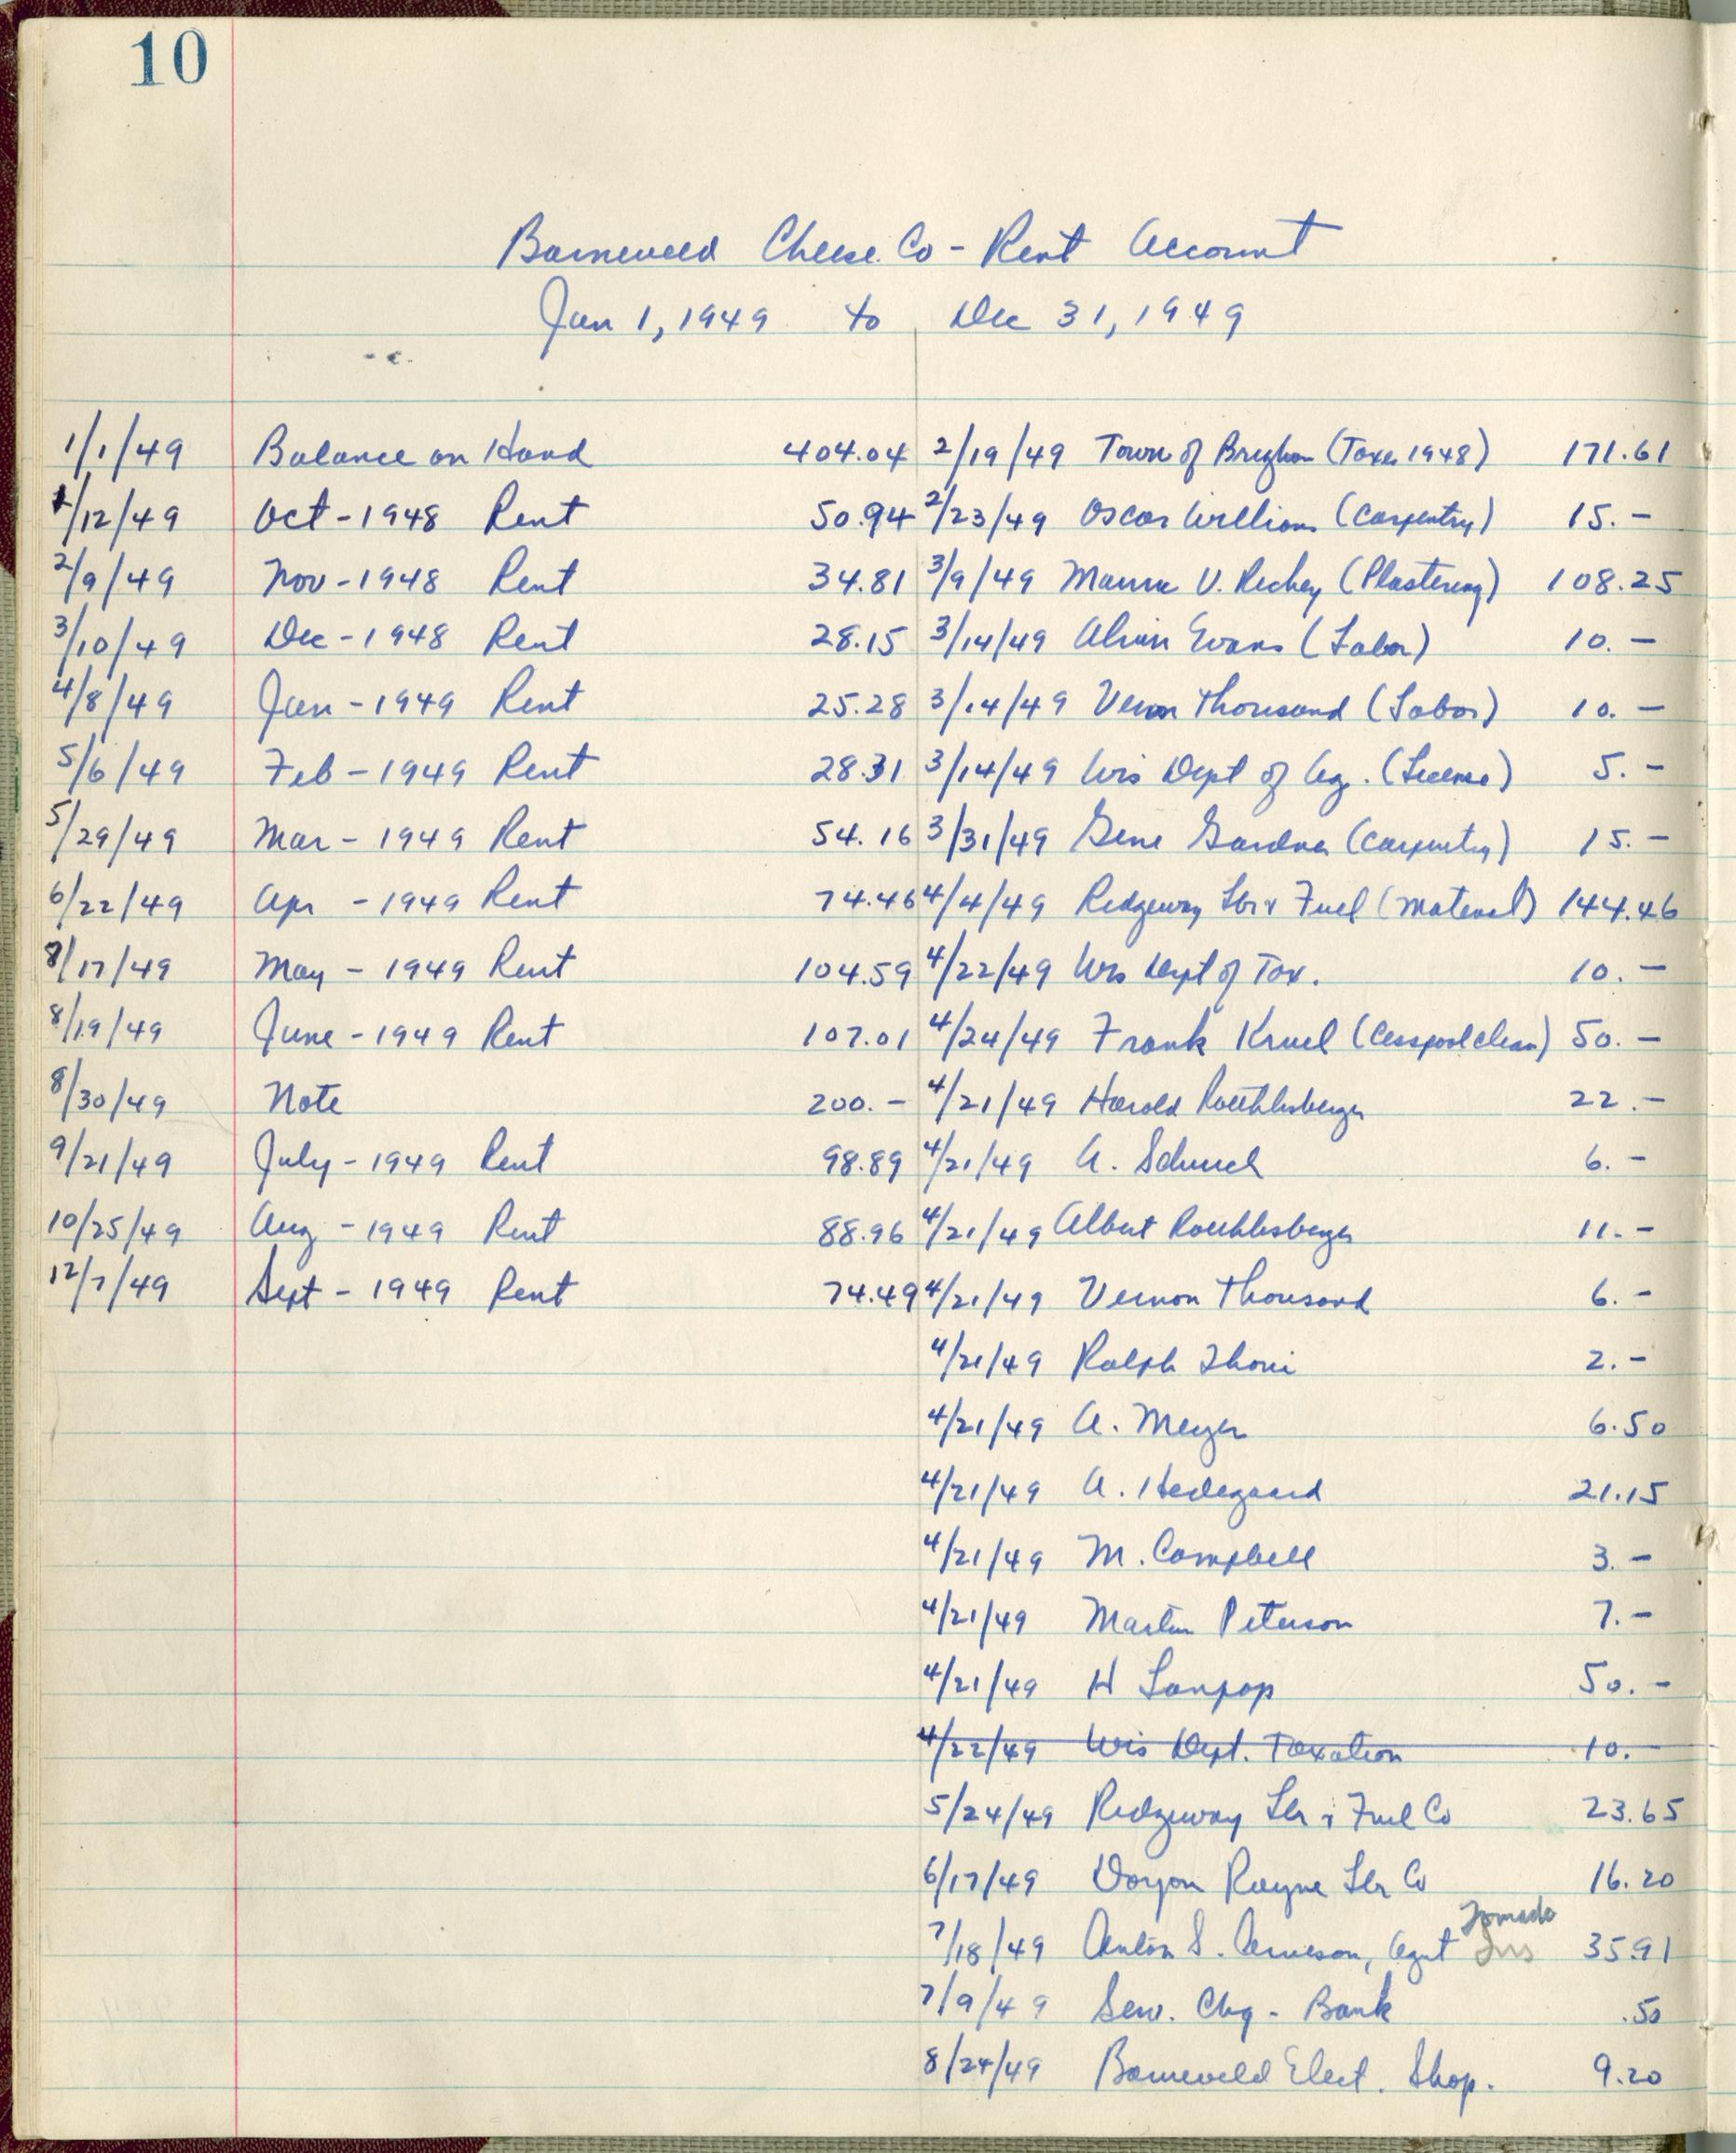 10
Barneveld Cheese Co - Rent Account
Jan 1, 1949 to Dec 31, 1949
1/1/49 Balance on Hand 404.04 2/19/49 Town of Brigham (Taxes 1948) 171.61
1/12/49 Oct - 1948 Rent 50.94 2/23/49 Oscar Williams (Carpentry) 15.-
2/9/49 Nov - 1948 Rent 34.81 3/9/49 V. Richey (Plastering) 108.25
3/10/49 Dec - 1948 Rent 28.15 3/14/49 Alvin Evans (Labor) 10.-
4/8/49 Jan - 1949 Rent 25.28 3/14/49 Vernon Thousand (Labor) 10.-
5/6/49 Feb - 1949 Rent 28.31 3/14/49 Wis Dept of Ag. (License) 5.-
5/29/49 Mar - 1949 Rent 54.16 3/31/49 Gene Gardner (Carpentry) 15.-
6/22/49 Apr - 1949 Rent 74.46 4/4/49 Ridgeway Lbr & Fuel (Material) 144.46
8/17/49 May - 1949 Rent 104.59 4/22/49 Wis Dept of Tax. 10.-
8/19/49 June - 1949 Rent 107.01 4/24/49 Frank Kruel (Cesspool clean) 50.-
8/30/49 Note 200.- 4/21/49 Harold Roethlisberger 22.-
9/21/49 July - 1949 Rent 98.89 4/21/49 A. Schuch 6.-
10/25/49 Aug - 1949 Rent 88.96 4/21/49 Albert Roethlisberger 11.-
12/7/49 Sept - 1949 Rent 74.49 4/21/49 Vernon Thousand 6.-
4/21/49 Ralph Thoni 2.-
4/21/49 A. Meyer 6.50
4/21/49 A. Hedegaard 21.15
4/21/49 M. Campbell 3.-
4/21/49 Martin Peterson 7.-
4/21/49 H Lanpop 50.-
4/22/49 Wis Dept. Taxation 10.
5/24/49 Ridgeway Lbr & Fuel Co 23.65
6/17/49 Rayne Lbr Co 16.20
Tornado
7/18/49 Anton S. Arneson, Agent Ins 35.91
7/9/49 Serv. Chg - Bank .50
8/24/49 Barneveld Elect. Shop. 9.20